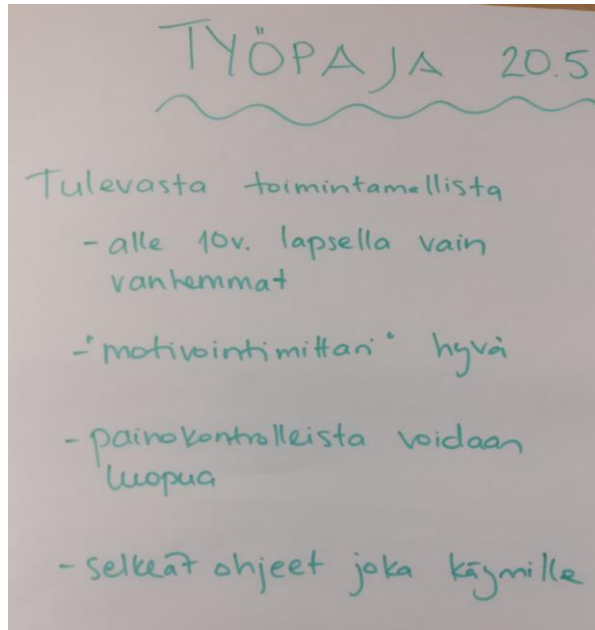 TYÖPAJA 20.5
Tulevasta toimintamallista
- alle 10v. lapsella vain
vanhemmat
- "motivointimittari" hyvä
- painokontrolleista voidaan
luopua
- selkeät ohjeet joka käynnille